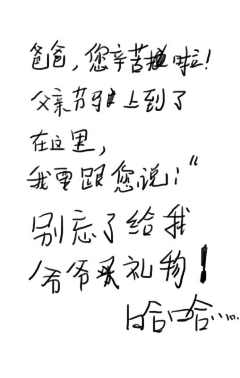 爸爸，您辛苦啦！
父亲节马上到了
在这里，
我要跟您说：“
别忘了给我
爷爷买礼物！
哈哈……